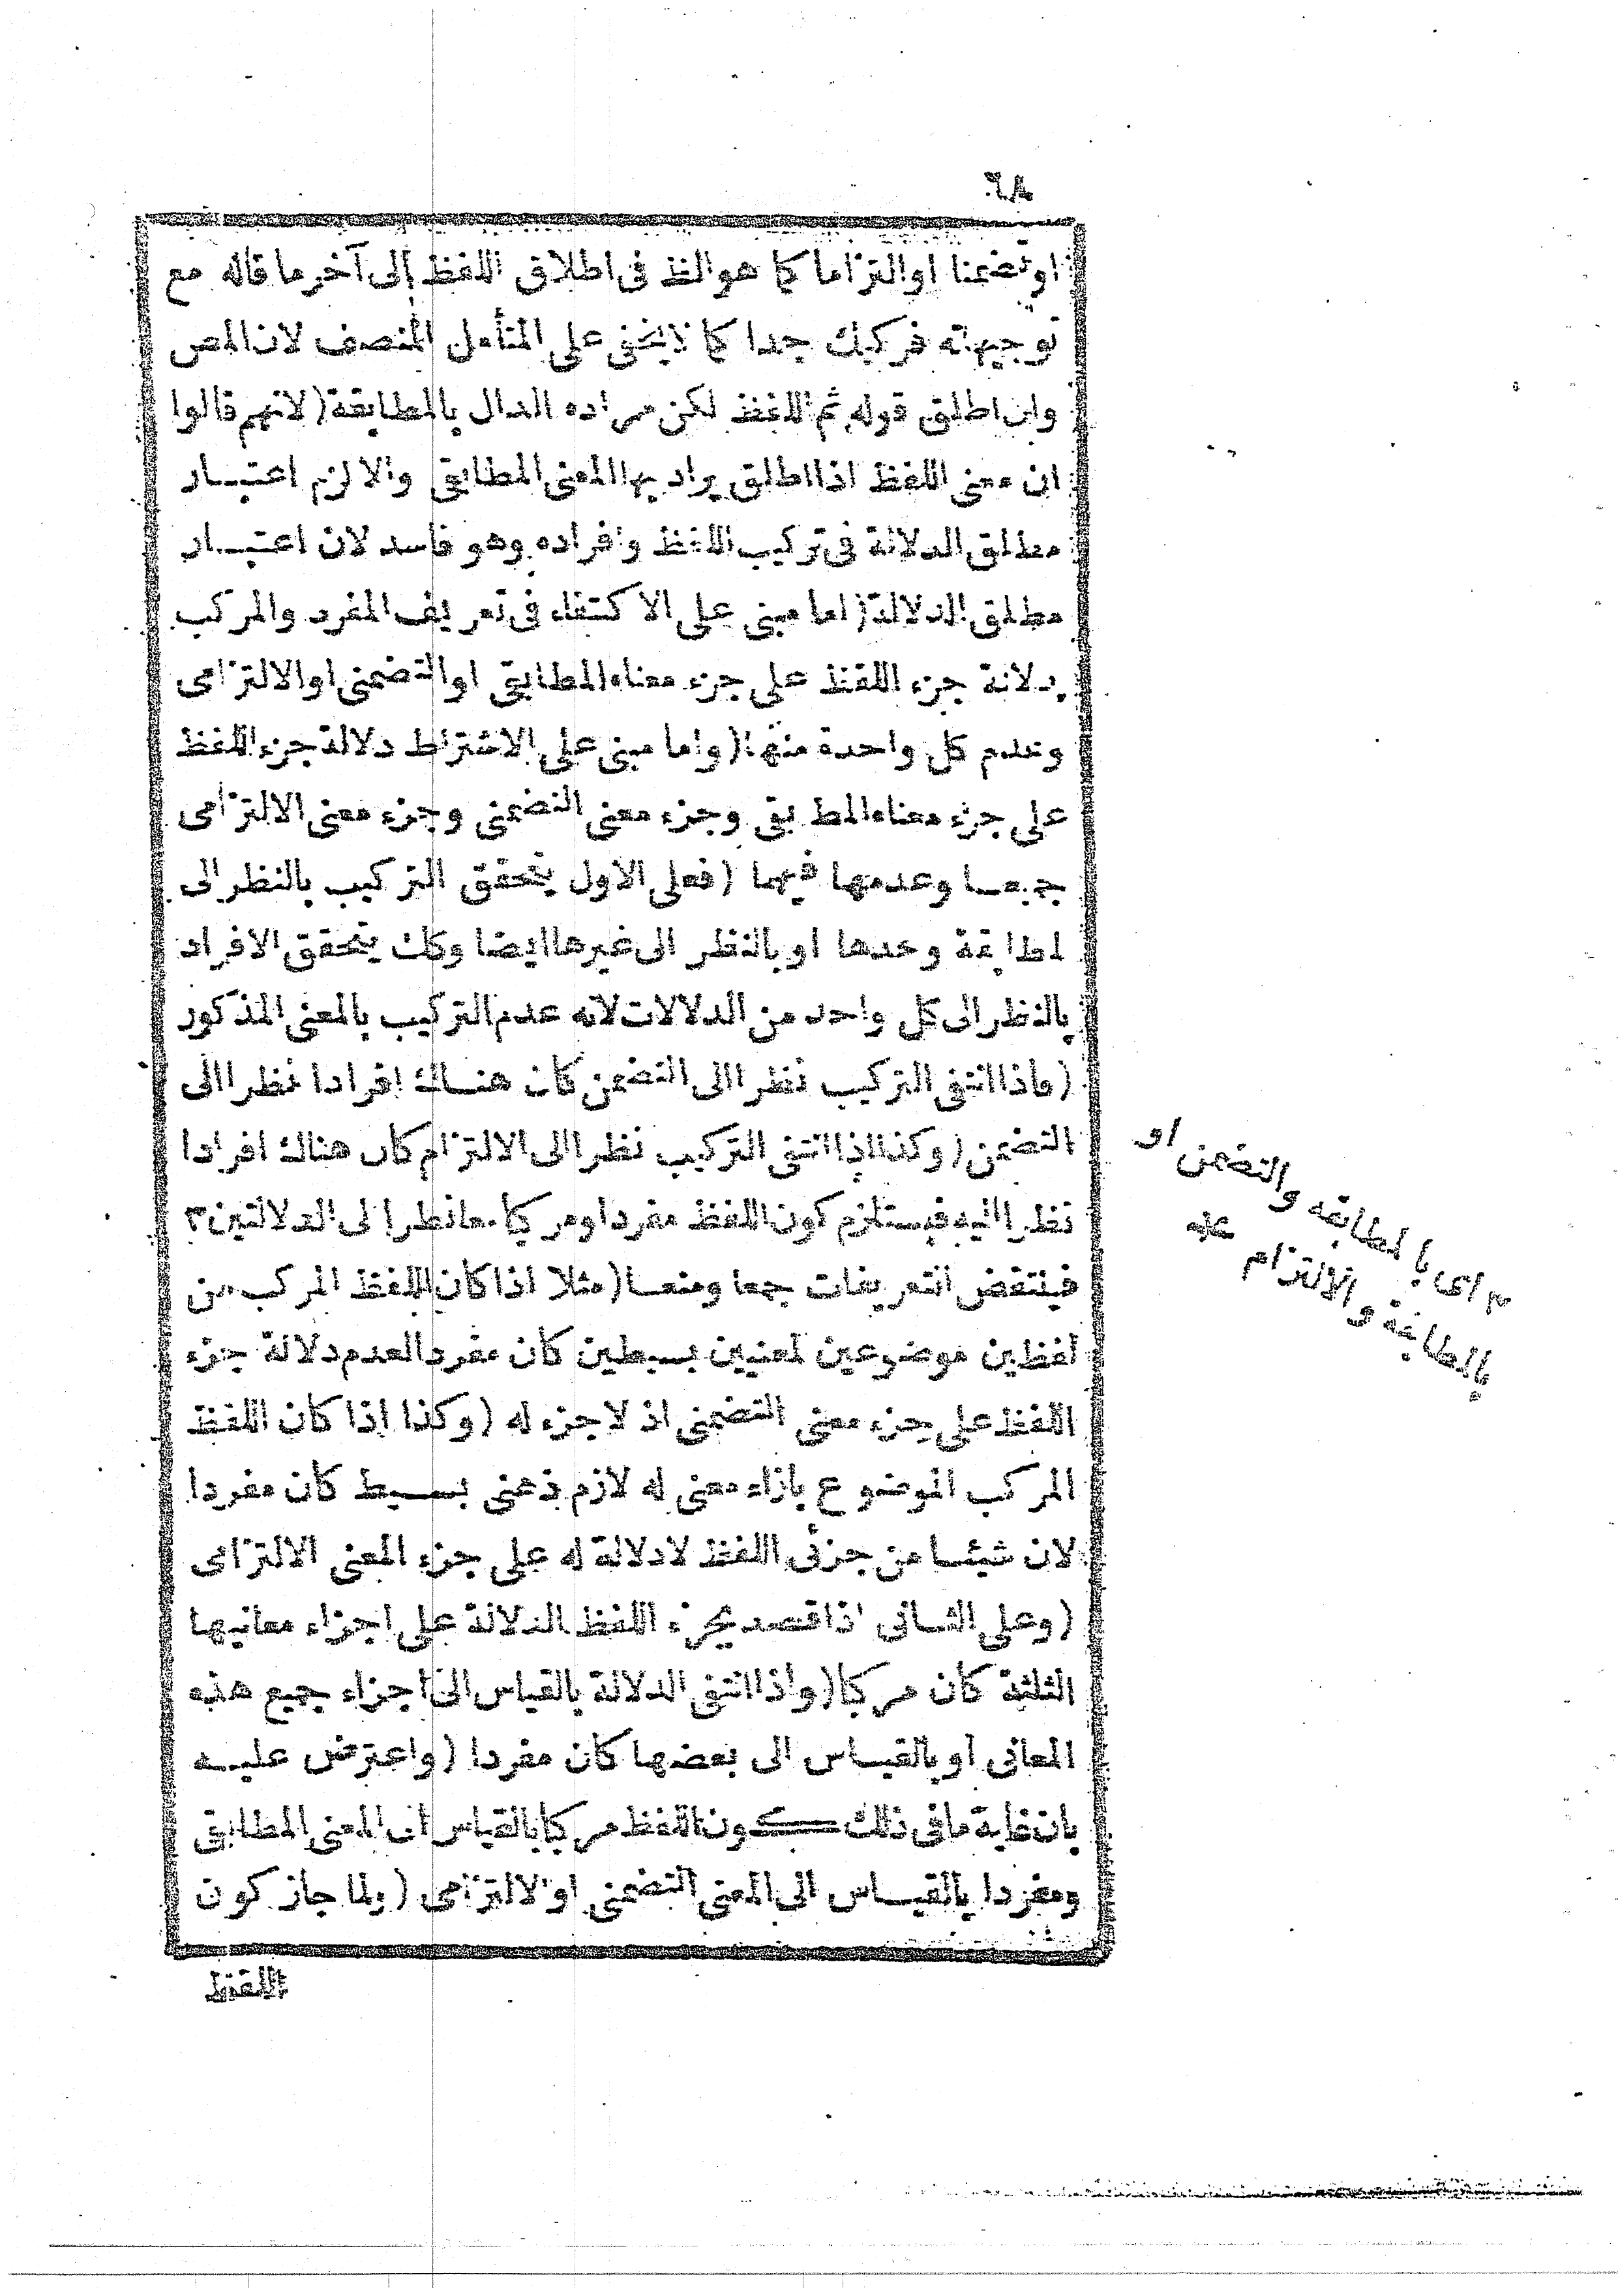 ٦٨
او تضمنا او التزاما كما هو الظ فى اطلاق اللفظ الى آخر ما قاله مع
توجيهاته فركيك جدا كما لا يخفى على المتأمل المنصف لان المص
وان اطلق قوله ثم اللفظ لكن مراده الدال بالمطابقة (لانهم قالوا
ان معنى اللفظ اذا اطلق يراد بها المعنى المطابقى والا لزم اعتبـار
مطلق الدلالة فى تركيب اللفظ وافراده وهو فاسد لان اعتبـار
مطلق الدلالة (اما مبنى على الاكتفاء فى تعريف المفرد والمركب
بدلالة جزء اللفظ على جزء معناه المطابقى او التضمنى او الالتزامى
وعدم كل واحدة منها (واما مبنى على الاشتراط دلالة جزء اللفظ
على جزء معناه المطابقى وجزء معنى التضمنى وجزء معنى الالتزامى
جميعـا وعدمها فيهما (فعلى الاول يتحقق التركيب بالنظر الى
لمطابقة وحدها او بالنظر الى غيرها ايضا وكك يتحقق الافراد
بالنظر الى كل واحد من الدلالات لانه عدم التركيب بالمعنى المذكور
(واذا انتفى التركيب نظرا الى التضمن كان هنـاك افرادا نظرا الى
التضمن (وكذا اذا انتفى التركيب نظرا الى الالتزام كان هناك افرادا
نظرا اليه فيستلزم كون اللفظ مفردا ومركبا معا نظرا الى الدلالتين ٣
فينتقض التعريفات جمعا ومنعـا (مثلا اذا كان اللفظ المركب من
لفظين موضوعين لمعنيين بسيطين كان مفردا لعدم دلالة جزء
اللفظ على جزء معنى التضمنى اذ لا جزء له (وكذا اذا كان اللفظ
المركب الموضوع بازاء معنى له لازم ذهنى بسـيط كان مفردا
لان شيئـا من جزئى اللفظ لا دلالة له على جزء المعنى الالتزامى
(وعلى الثـانى اذا قصد بجزء اللفظ الدلالة على اجزاء معانيها
الثلثة كان مركبا (واذا انتفى الدلالة بالقياس الى اجزاء جميع هذه
المعانى او بالقيـاس الى بعضها كان مفردا (واعترض عليـه
بان غاية ما فى ذلك كـون اللفظ مركبا بالقياس الى المعنى المطابقى
ومفردا بالقيـاس الى المعنى التضمنى او الالتزامى (ولما جاز كون
اللفظ
٣ اى بالمطابقه والتضمن او
بالمطابقة والالتزام عنه